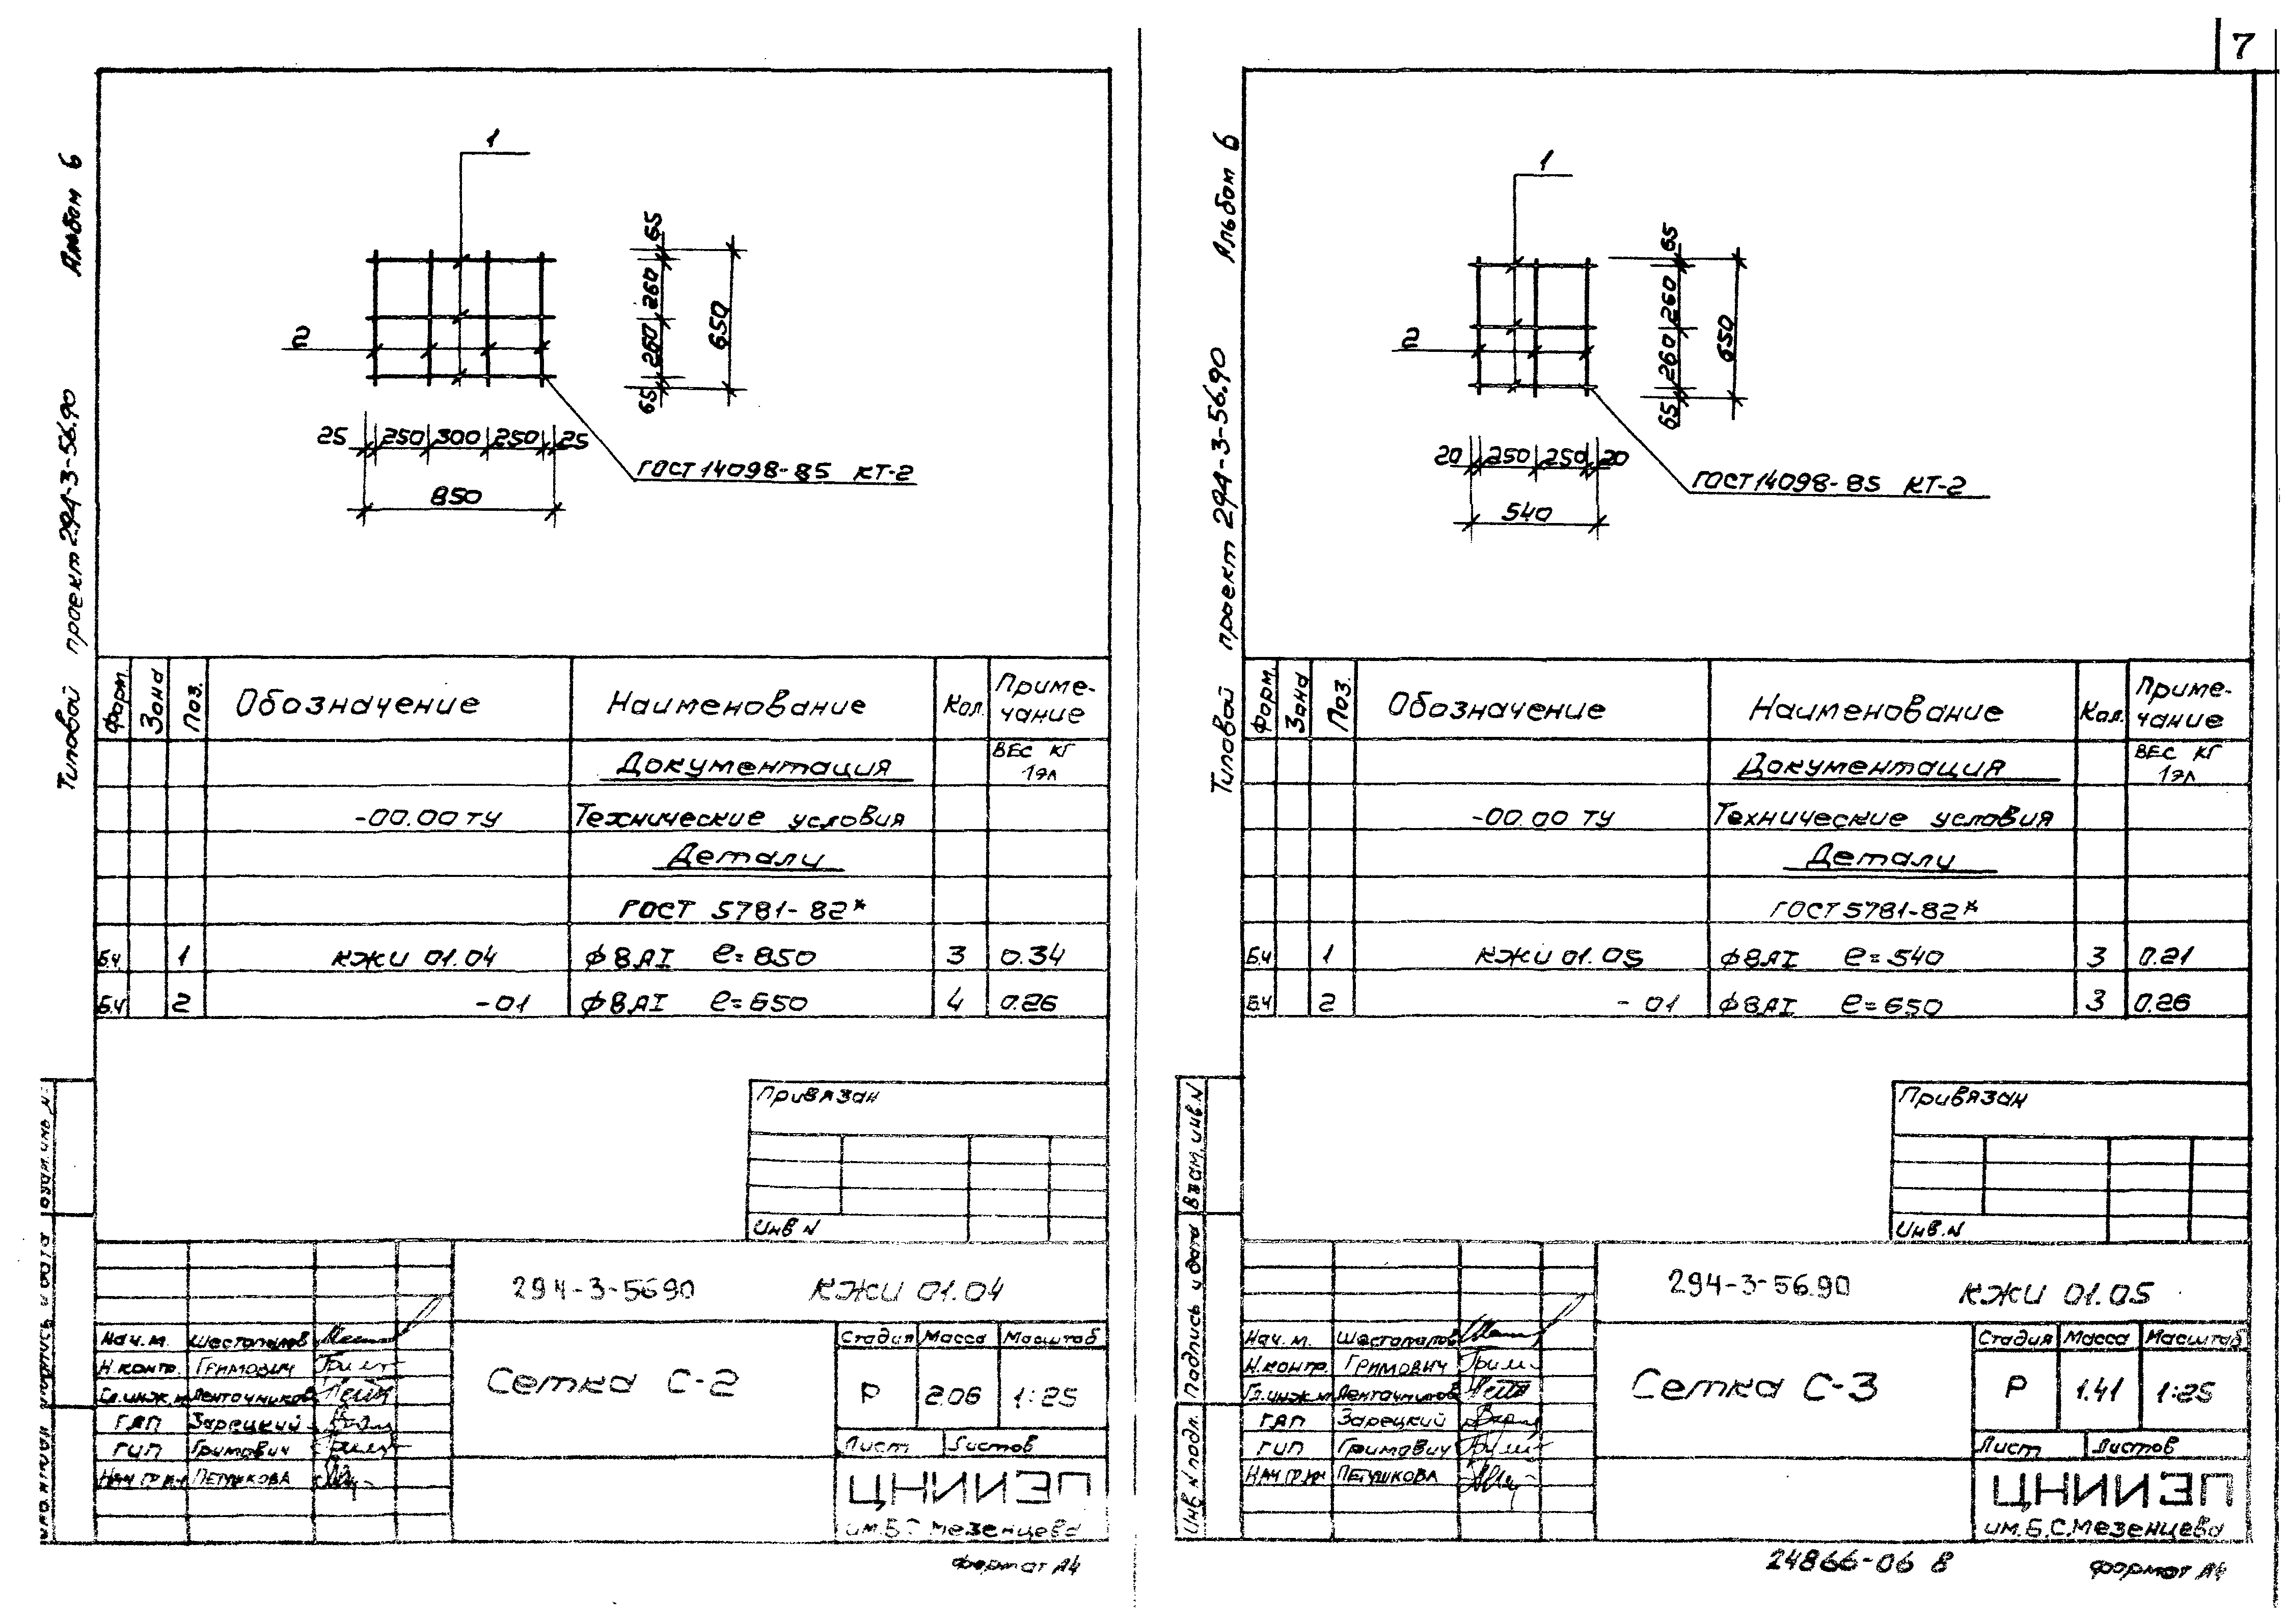 7
Альбом 6
Типовой проект 294-3-56.90
1
2
65
260
260
65
650
25 250 300 250 25
850
ГОСТ 14098-85 КТ-2
Форм. Зона Поз. Обозначение Наименование Кол. Приме-
чание
Документация ВЕС КГ
1эл
-00.00 ТУ Технические условия
Детали
ГОСТ 5781-82*
Б.Ч. 1 КЖИ 01.04 Ф8АI ℓ=850 3 0.34
Б.Ч 2 -01 Ф8АI ℓ=650 4 0.26
Привязан
Инв.N
294-3-56.90 КЖИ 01.04
Нач.м. Шестопалов
Н.контр. Гримович
Гл.инж.м Ленточников
ГАП Зарецкий
ГИП Гримович
Нач.гр. Петушкова
Сетка С-2
Стадия Масса Масштаб
Р 2.06 1:25
Лист Листов
ЦНИИЭП
им.Б.С.Мезенцева
Формат А4
Взам.инв.N
Подпись и дата
Инв.N подл.
Альбом 6
Типовой проект 294-3-56.90
1
2
65
260
260
65
650
20 250 250 20
540
ГОСТ 14098-85 КТ-2
Форм. Зона Поз. Обозначение Наименование Кол. Приме-
чание
Документация ВЕС КГ
1эл
-00.00 ТУ Технические условия
Детали
ГОСТ 5781-82*
Б.Ч 1 КЖИ 01.05 Ф8АI ℓ=540 3 0.21
Б.Ч 2 -01 Ф8АI ℓ=650 3 0.26
Привязан
Инв.N
294-3-56.90 КЖИ 01.05
Нач.м. Шестопалов
Н.контр. Гримович
Гл.инж.м Ленточников
ГАП Зарецкий
ГИП Гримович
Нач.гр. Петушкова
Сетка С-3
Стадия Масса Масштаб
Р 1.41 1:25
Лист Листов
ЦНИИЭП
им.Б.С.Мезенцева
24866-06 8
Формат А4
Взам.инв.N
Подпись и дата
Инв.N подл.